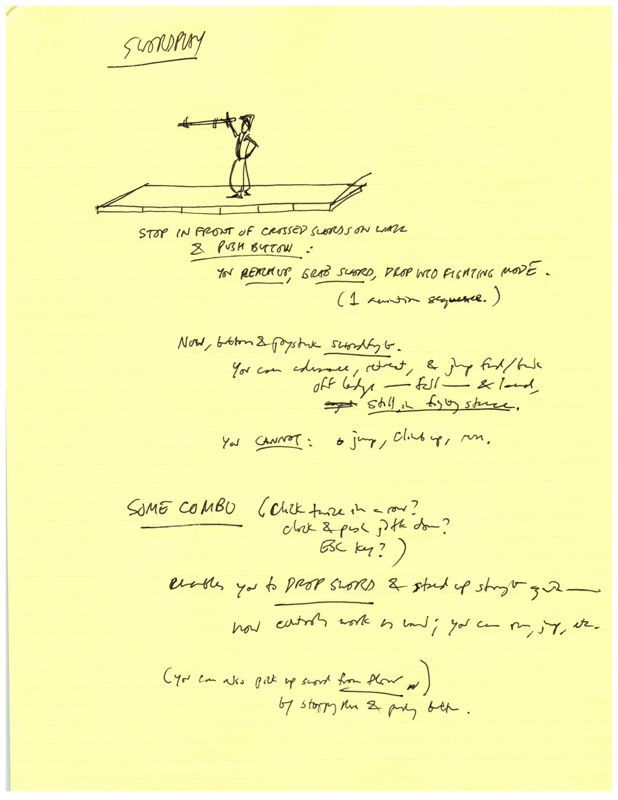 SWORDPLAY
STOP IN FRONT OF CROSSED SWORDS ON WALL
& PUSH BUTTON:
YOU REACH UP, GRAB SWORD, DROP INTO FIGHTING MODE.
(1 animation sequence.)
Now, button & joystick swordfight.
You can advance, retreat, & jump fwd/back
off ledge — fall — & land,
still in fighting stance.
You CANNOT: jump, climb up, run.
SOME COMBO (Click twice in a row?
click & push jstk down?
ESC key?)
enables you to DROP SWORD & stand up straight again —
now controls work as usual; you can run, jump, etc.
(You can also pick up sword from floor)
by stopping there & pushing button.